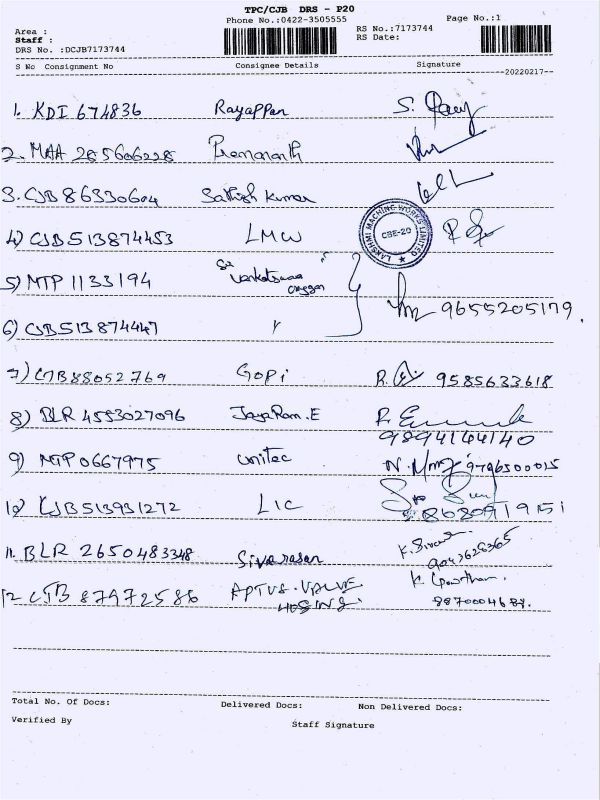 TPC/CJB DRS - P20
Phone No.:0422-3505555
Page No.:1
Area :
Staff :
RS No.:7173744
RS Date:
DRS No. :DCJB7173744
S No Consignment No Consignee Details Signature
20220217
1. KDI 674836 Rayappan
2. MAA 285606228 Premananth
3. CJB 86330604 Sathish Kumar
4) CJB513874453 LMW
LAKSHMI MACHINE WORKS LIMITED
CBE-20
5) MTP 1133194 Sri
9655205179.
6) CJB513874447 "
7) CJB88052769 Gopi 9585633618
8) BLR 4553027096 JayaRam.E
9894144140
9) MTP0667975 Unitec 9796500015
10) CJB513931272 LIC
11. BLR 2650483348 Sivarasan
9043626365
12. CJB 87972586 APTUS. VALVE K. Gowtham.
HOSING.
Total No. Of Docs: Delivered Docs: Non Delivered Docs:
Verified By Staff Signature